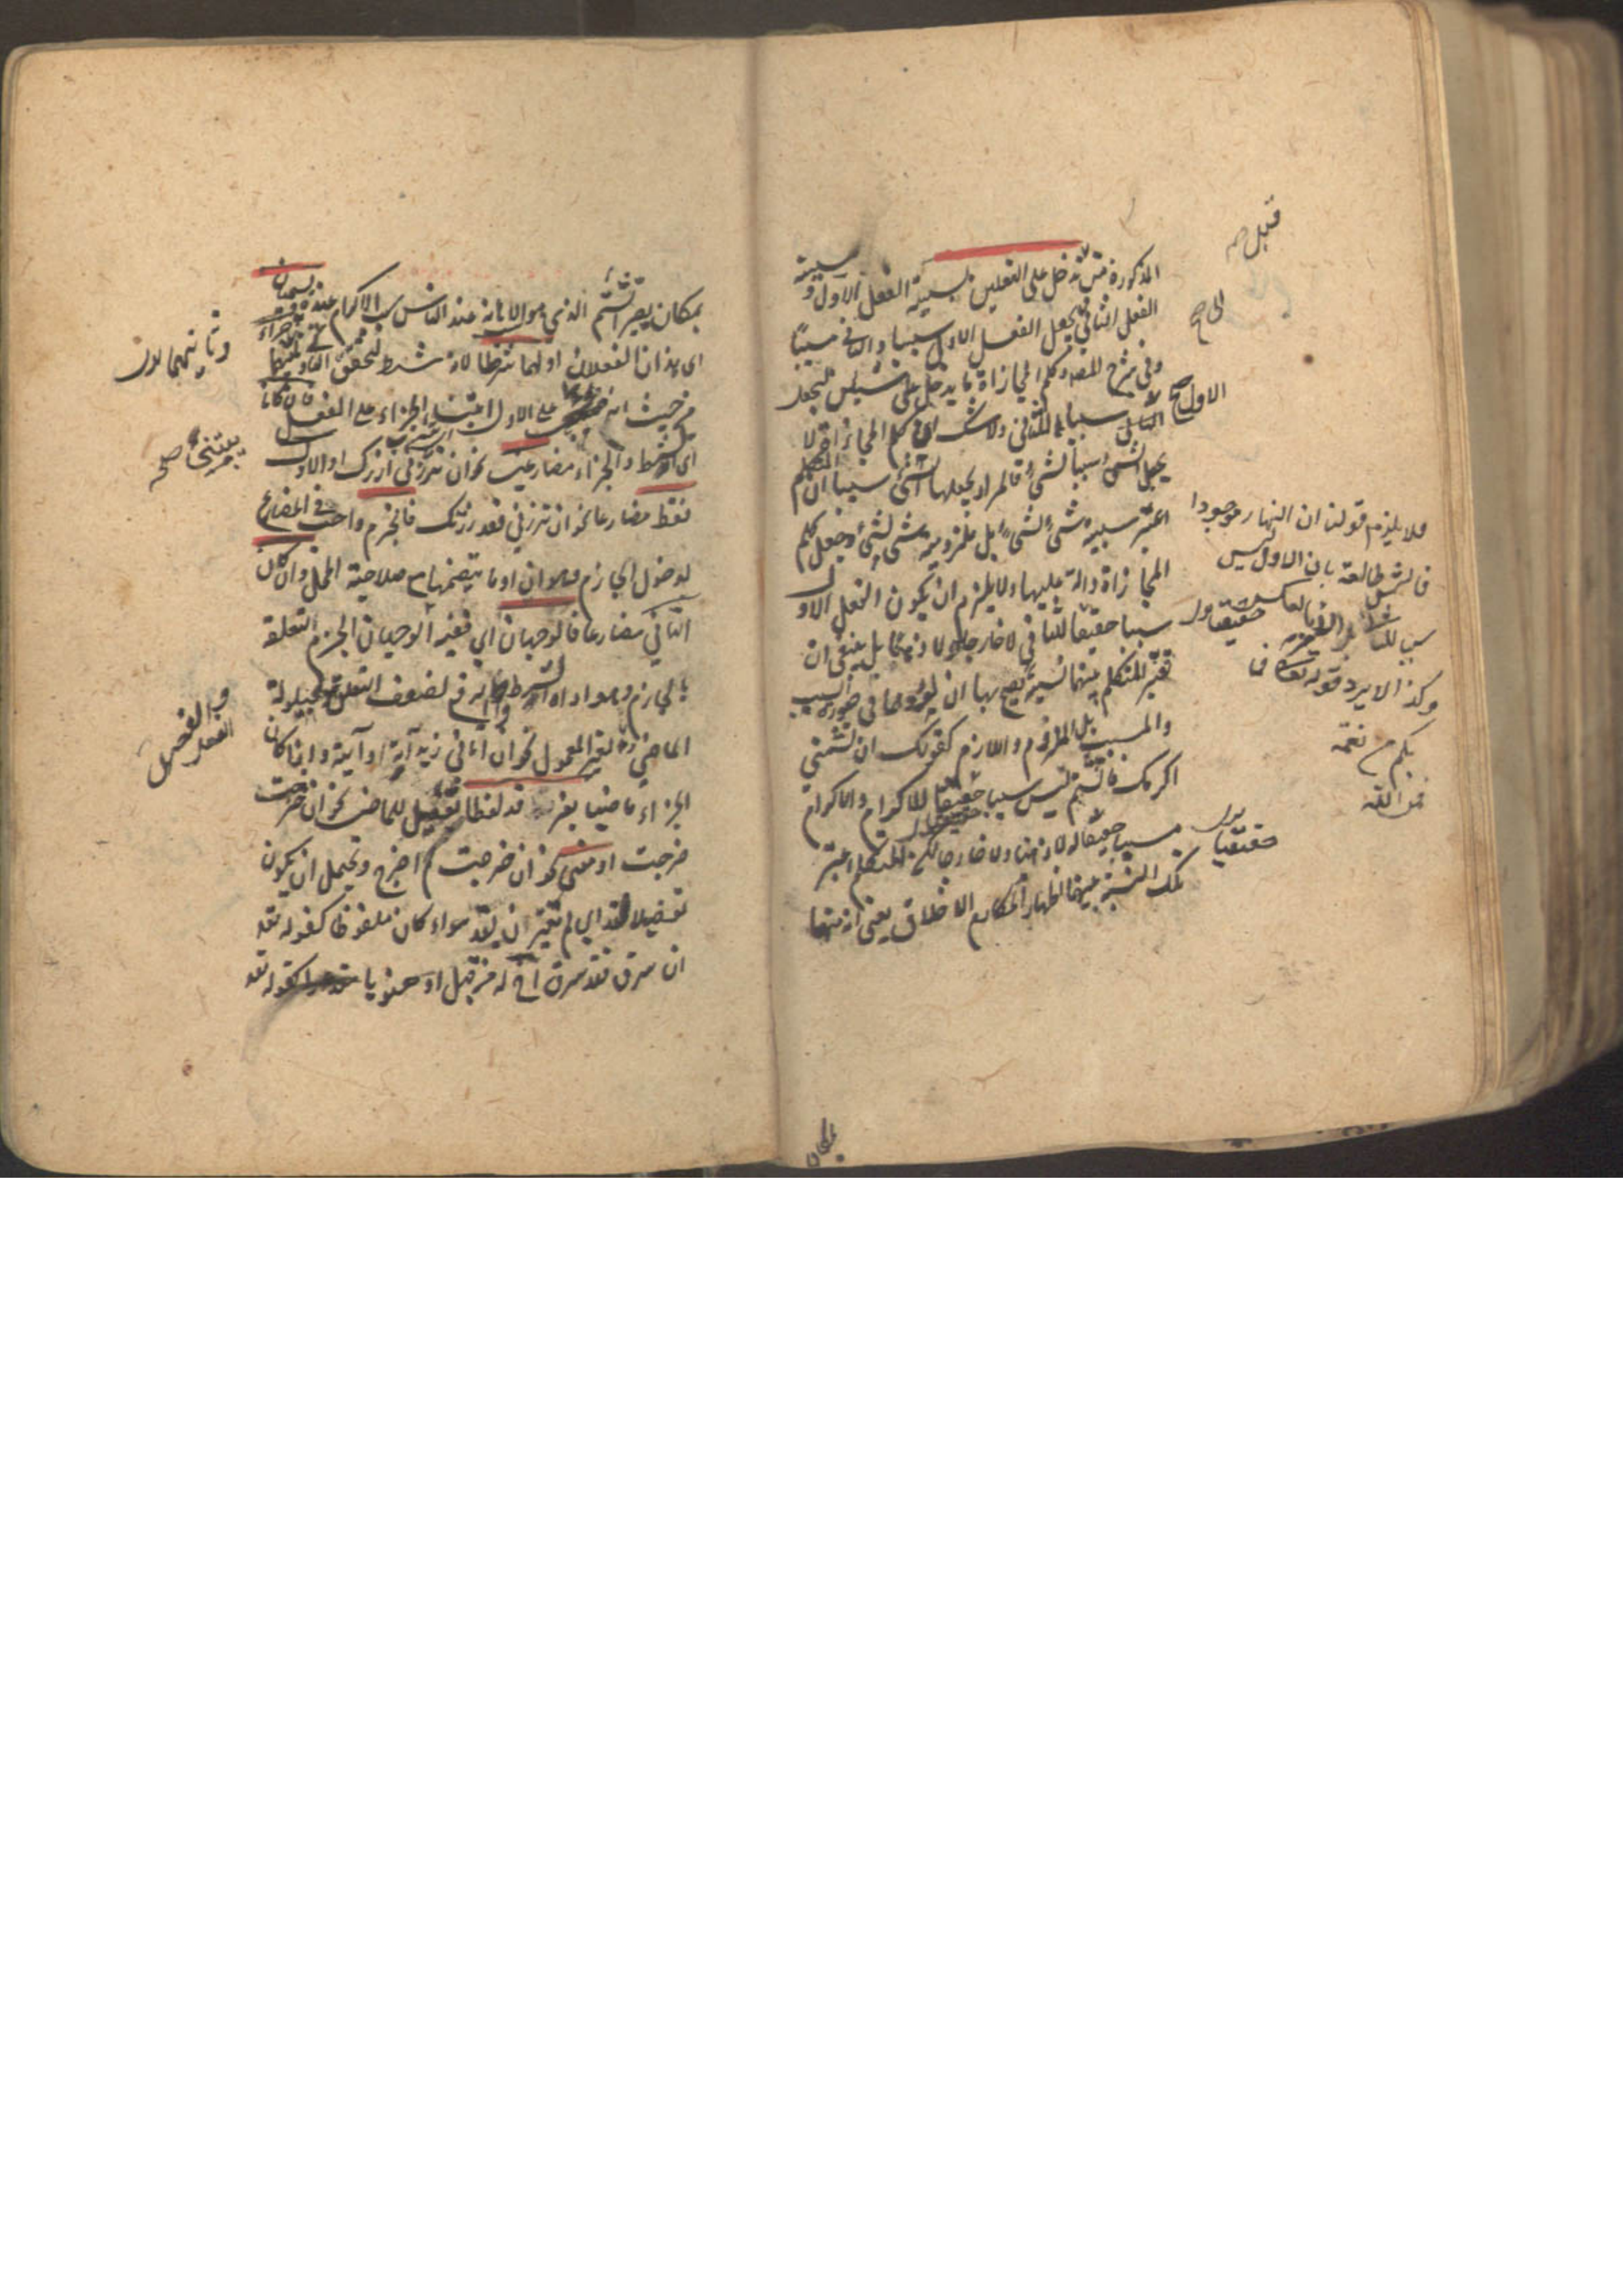 المذكورة قبل تدخل على الفعلين لسببية الفعل الاول و مسببية
الفعل الثاني اي يجعل الفعل الاول سببا والثاني مسببا
وفي شرح المص وكلم المجازاة ما يدخل على شيئين ليجعل
الاول سببا للثاني ولا شك ان كلم المجازاة لا
يجعل الشئ سببا لشئ فالمراد بجعلها الشئ سببا ان المتكلم
اعتبر سببية شئ لشئ بل ملزومية شئ لشئ وجعل كلم
المجازاة دالة عليها ولا يلزم ان يكون الفعل الاول
سببا حقيقيا للثاني لا خارجا ولا ذهنا بل ينبغي ان
يعتبر المتكلم بينهما نسبة يصح بها ان يوردهما في صورة السبب
والمسبب بل الملزوم واللازم كقولك ان تشتمني
اكرمك فالشتم ليس سببا حقيقيا للاكرام والاكرام
مسببا حقيقيا له لا ذهنا ولا خارجا لكن المتكلم اعتبر
تلك النسبة بينهما اظهارا لمكارم الاخلاق يعني انه منها
قبل صح
الى صح
الاول صح
فلا يلزم قولنا ان النهار موجودا
فالشمس طالعة بان الاول ليس
سببا للثاني بل بالعكس
وكذا لا يرد قوله تعالى فما
بكم من نعمة
فمن الله
حقيقيا
بمكان
بمكان يصير الشتم الذي هو الاهانة عند الناس سبب الاكرام عنده ويسميان
اي هذان الفعلان اولهما شرطا لانه شرط لتحقق الثاني وثانيهما جزاء
من حيث انه يبتني على الاول ابتناء الجزاء على الفعل فان كانا
اي الشرط والجزاء مضارعين نحو ان تزرني ازرك او الاول
فقط مضارعا نحو ان تزرني فقد زرتك فالجزم واجب في المضارع
لدخول الجازم وهو ان او ما يتضمنها مع صلاحية المحل وان كان
الثاني مضارعا فالوجهان اي ففيه الوجهان الجزم لتعلقه
بالجازم وهو اداة الشرط والرفع لضعف التعلق لحيلولة
الماضي والفصل بغير المعمول نحو ان اتاني زيد آته او آتيه واذا كان
الجزاء ماضيا بغير قد لفظا تفصيل للماضي نحو ان خرجت
خرجت او معنى نحو ان خرجت لم اخرج ويحتمل ان يكون
تفصيلا لقد اي لم تقترن بقد سواء كان ملفوظا كقوله تعالى
ان يسرق فقد سرق اخ له من قبل او معنويا كقوله تعالى
وثانيهما
يبتني صح
والفصل